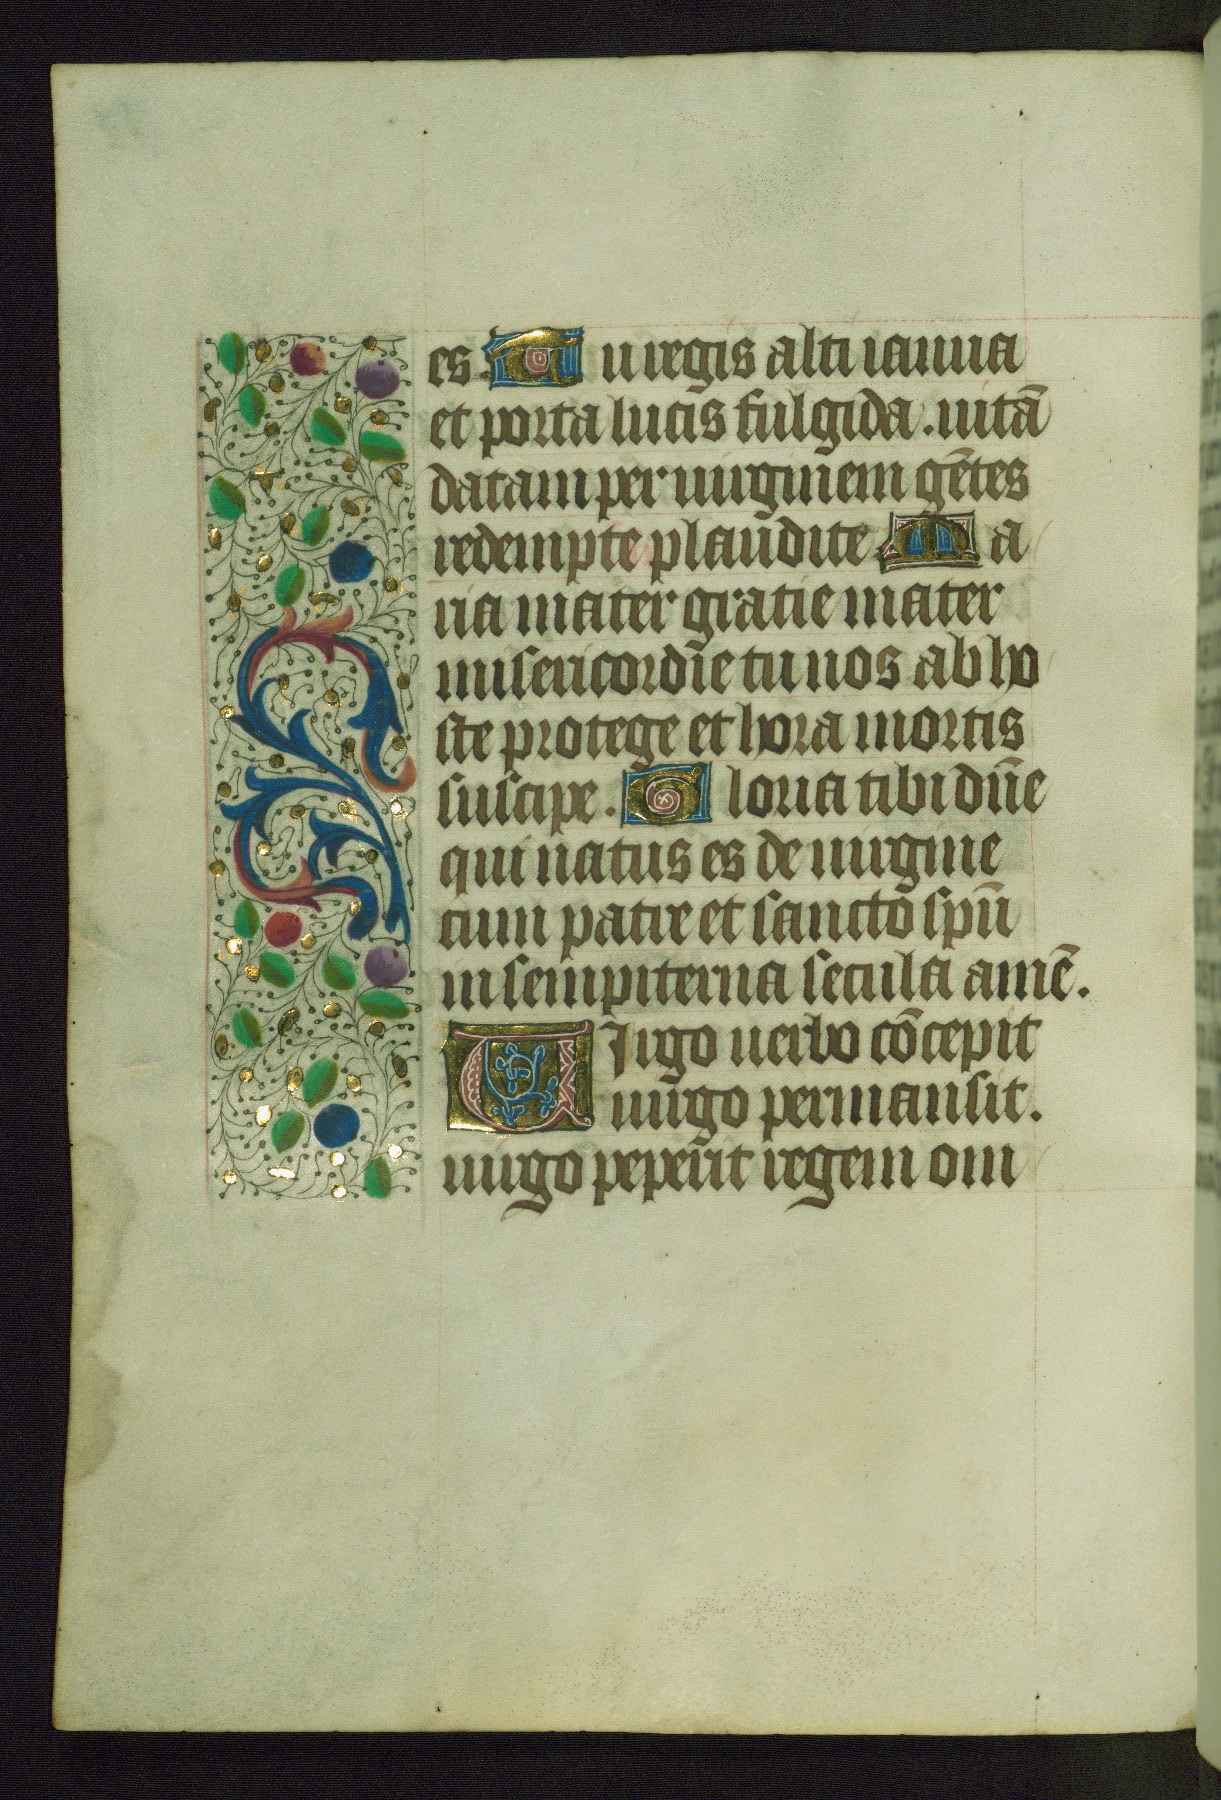 es. Tu regis alti ianua
et porta lucis fulgida. uitā
datam per uirginem gētes
redempte plaudite Ma
ria mater gratie mater
misericordie tu nos ab ho
ste protege et hora mortis
suscipe. Gloria tibi dn̄e
qui natus es de uirgine
cum patre et sancto spū
in sempiterna secula amē.
VIrgo uerbo cōcepit
uirgo permansit.
uirgo peperit regem om